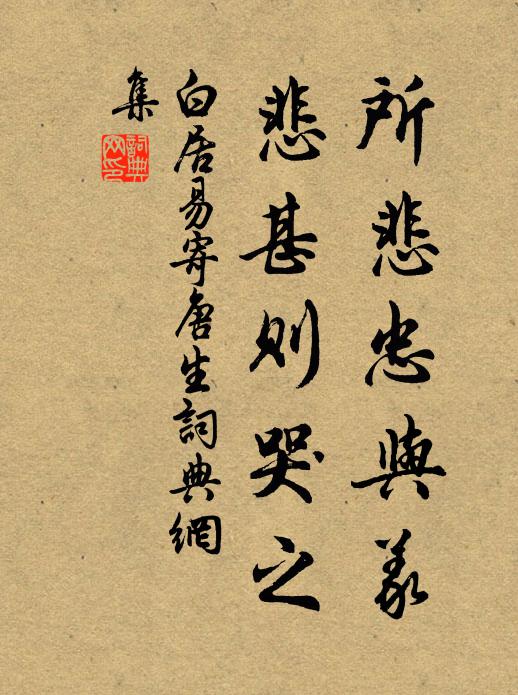 所悲忠與義
悲甚則哭之
白居易寄唐生詞典網
集
詞典
网印